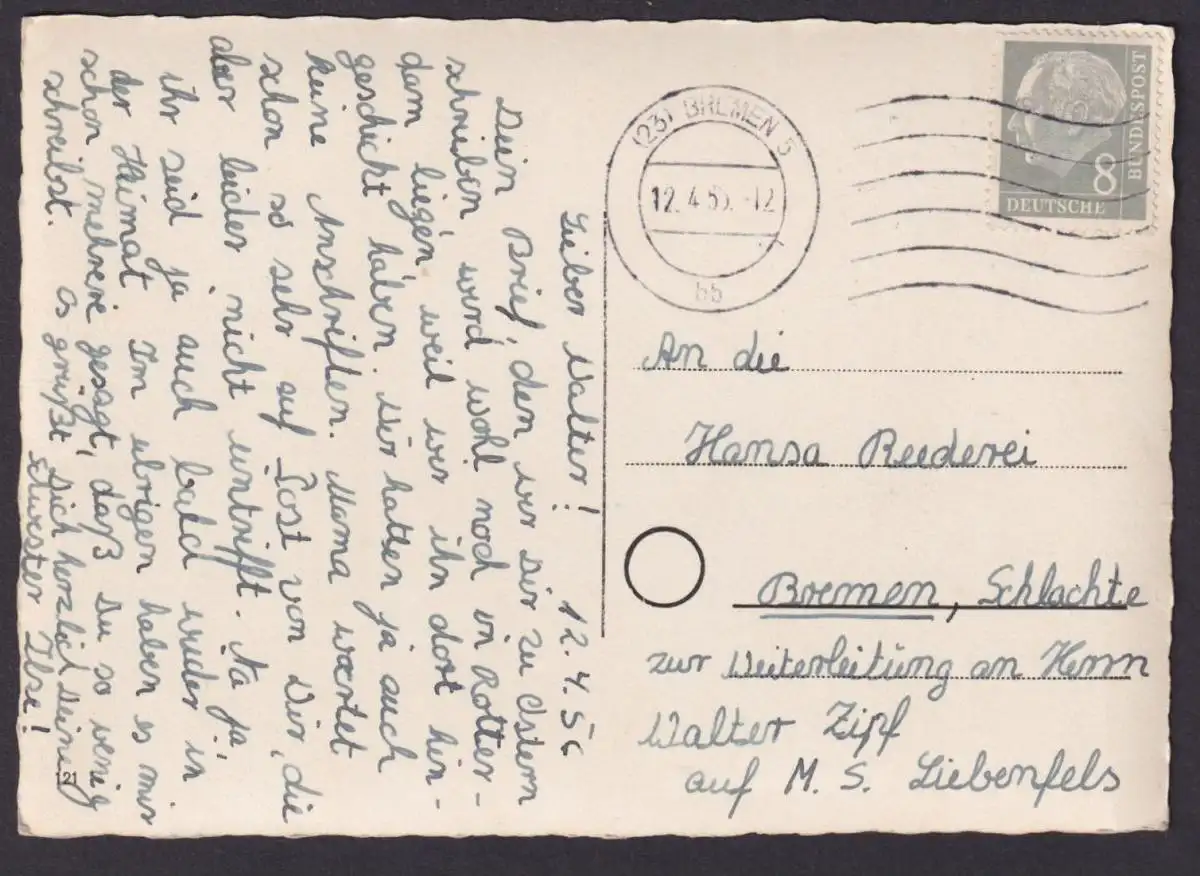 Lieber Walter! 12.4.56
Dein Brief, den wir Dir zu Ostern
schrieben, wird wohl noch in Rotter-
dam liegen, weil wir ihn dort hin-
geschickt haben. Wir hatten ja auch
keine Anschriften. Mama wartet
schon so sehr auf Post von Dir, die
aber leider nicht eintrifft. Na ja!
ihr seid ja auch bald wieder in
der Heimat. Im übrigen haben es mir
schon mehrere gesagt, daß Du so wenig
schreibst. Es grüßt Dich herzlich Deine
Schwester Ilse!
21
(23) BREMEN 5
12. 4. 56. -12
bb
8
DEUTSCHE
BUNDESPOST
An die
Hansa Reederei
Bremen, Schlachte
zur Weiterleitung an Herrn
Walter Zipf
auf M. S. Liebenfels